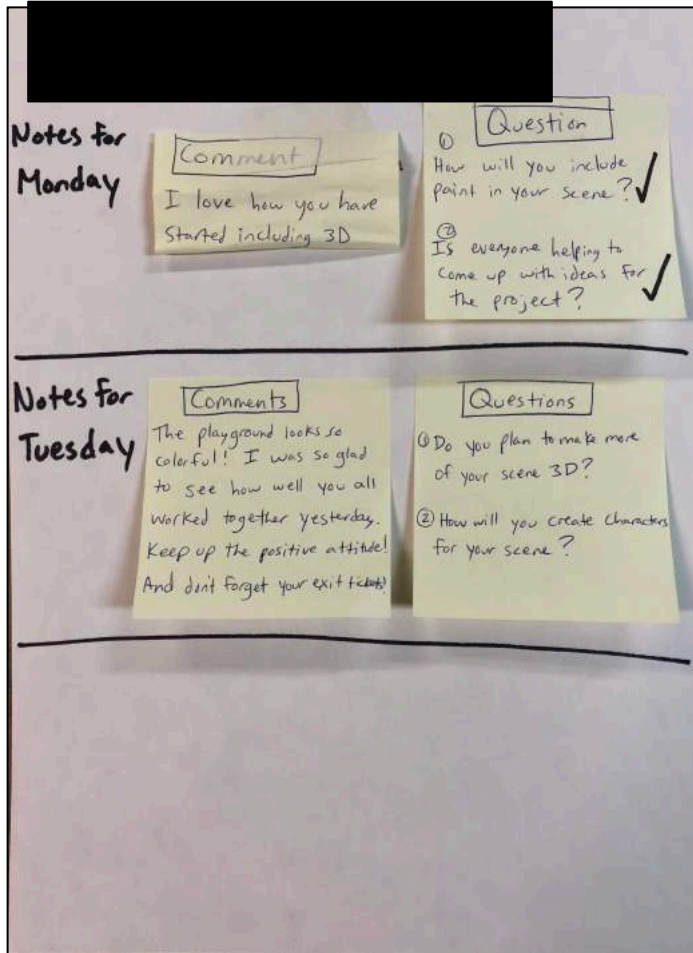 Notes for
Monday
Comment
I love how you have
started including 3D
Question
① How will you include
paint in your scene? ✓
② Is everyone helping to
come up with ideas for
the project? ✓
Notes for
Tuesday
Comments
The playground looks so
colorful! I was so glad
to see how well you all
worked together yesterday.
Keep up the positive attitude!
And don't forget your exit tickets!
Questions
① Do you plan to make more
of your scene 3D?
② How will you create characters
for your scene?